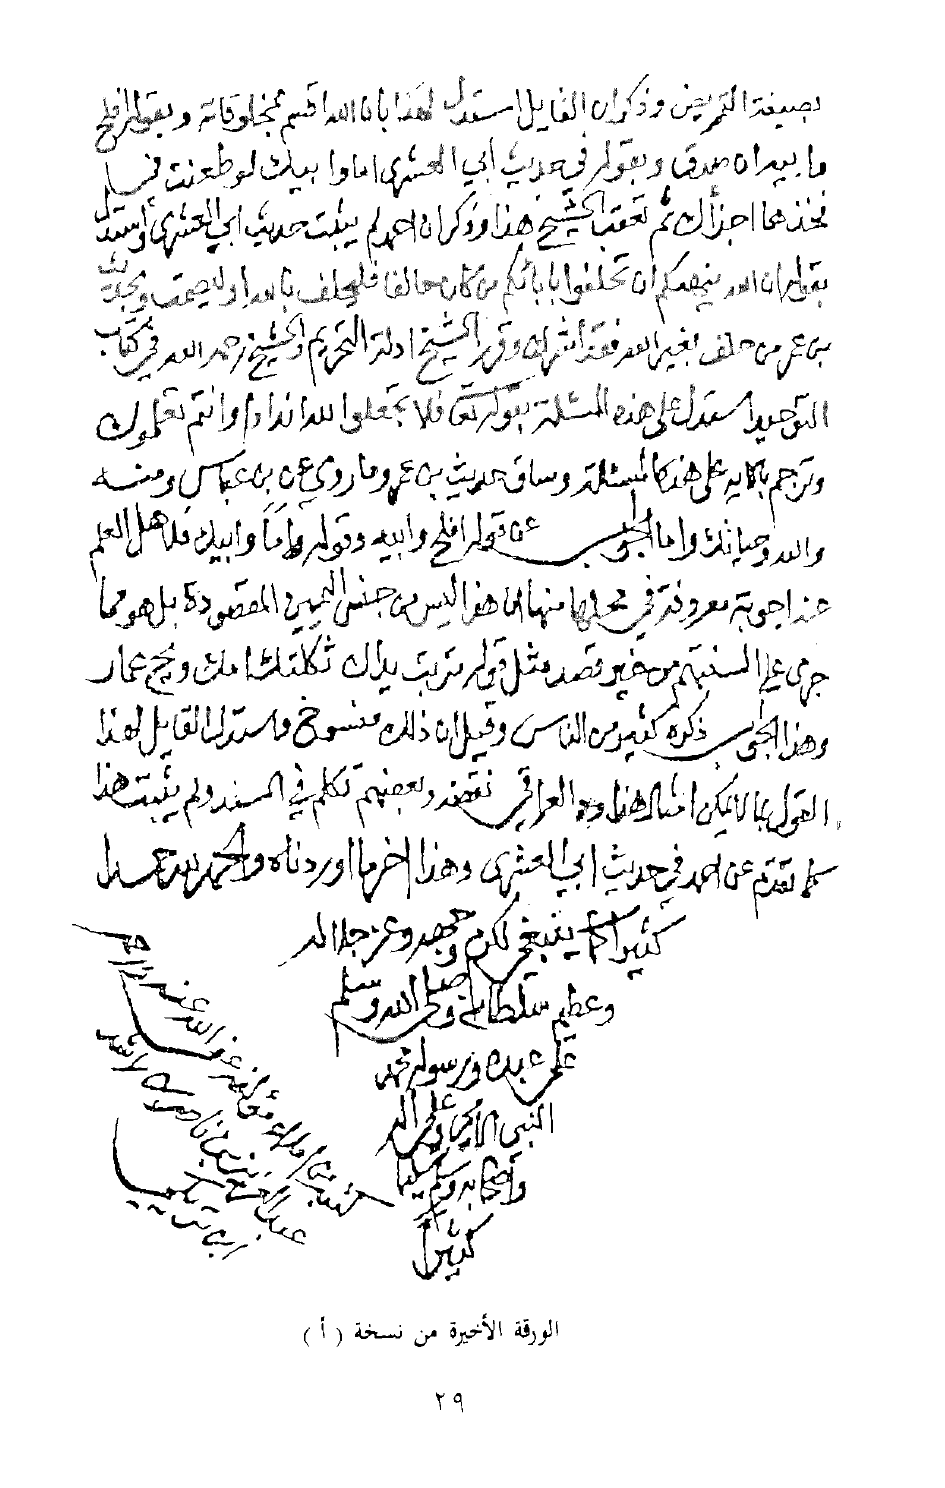 بصيغة التمريض وذكر ان القايل استدل لهذا بان الله اقسم بمخلوقاته وبقوله افلح
وابيه ان صدق وبقوله في حديث ابي العشرى اما وابيك لو طعنت في
فخذها اجزأك ثم تعقب الشيخ هذا وذكر ان احمد لم يثبت حديث ابي العشرى واستدل
بقوله ان الله ينهاكم ان تحلفوا بابائكم من كان حالفا فليحلف بالله او ليصمت وبحديث
بن عمر من حلف بغير الله فقد اشرك وقرر الشيخ ادلة التحريم والشيخ رحمه الله في كتاب
التوحيد استدل على هذه المسئلة بقوله تعا فلا تجعلوا لله اندادا وانتم تعلمون
وترجم بالايه على هذه المسئلة وساق حديث بن عمر وما روي عن بن عباس ومنه
والله وحياتك واما الجواب عن قوله افلح وابيه وقوله واما وابيك فلاهل العلم
عنه اجوبة معروفة في محلها منها ان هذا ليس من جنس اليمين المقصودة بل هو مما
جرى على السنتهم من غير قصد مثل قوله تربت يداك ثكلتك امك وويح عمار
وهذا الجواب ذكره كثير من الناس وقيل ان ذلك منسوخ واستدل القايل لهذا
القول بما لا يمكن العراقي نقضه وبعضهم تكلم في السند ولم يثبت هذا
كما تقدم عن احمد في حديث ابي العشرى وهذا اخر ما اوردناه والحمد لله حمدا
كثيرا كما ينبغي لكرم وجهه وعز جلاله
وعظيم سلطانه وصلى الله وسلم
على عبده ورسوله محمد
النبي الامي وعلى اله
واصحابه وسلم تسليما
كثيرا
كتبه من املاء مؤلفه عفا الله عنه
عبد العزيز بن ناصر بن راشد
ابن تريكي
الورقة الأخيرة من نسخة ( أ )
٢٩